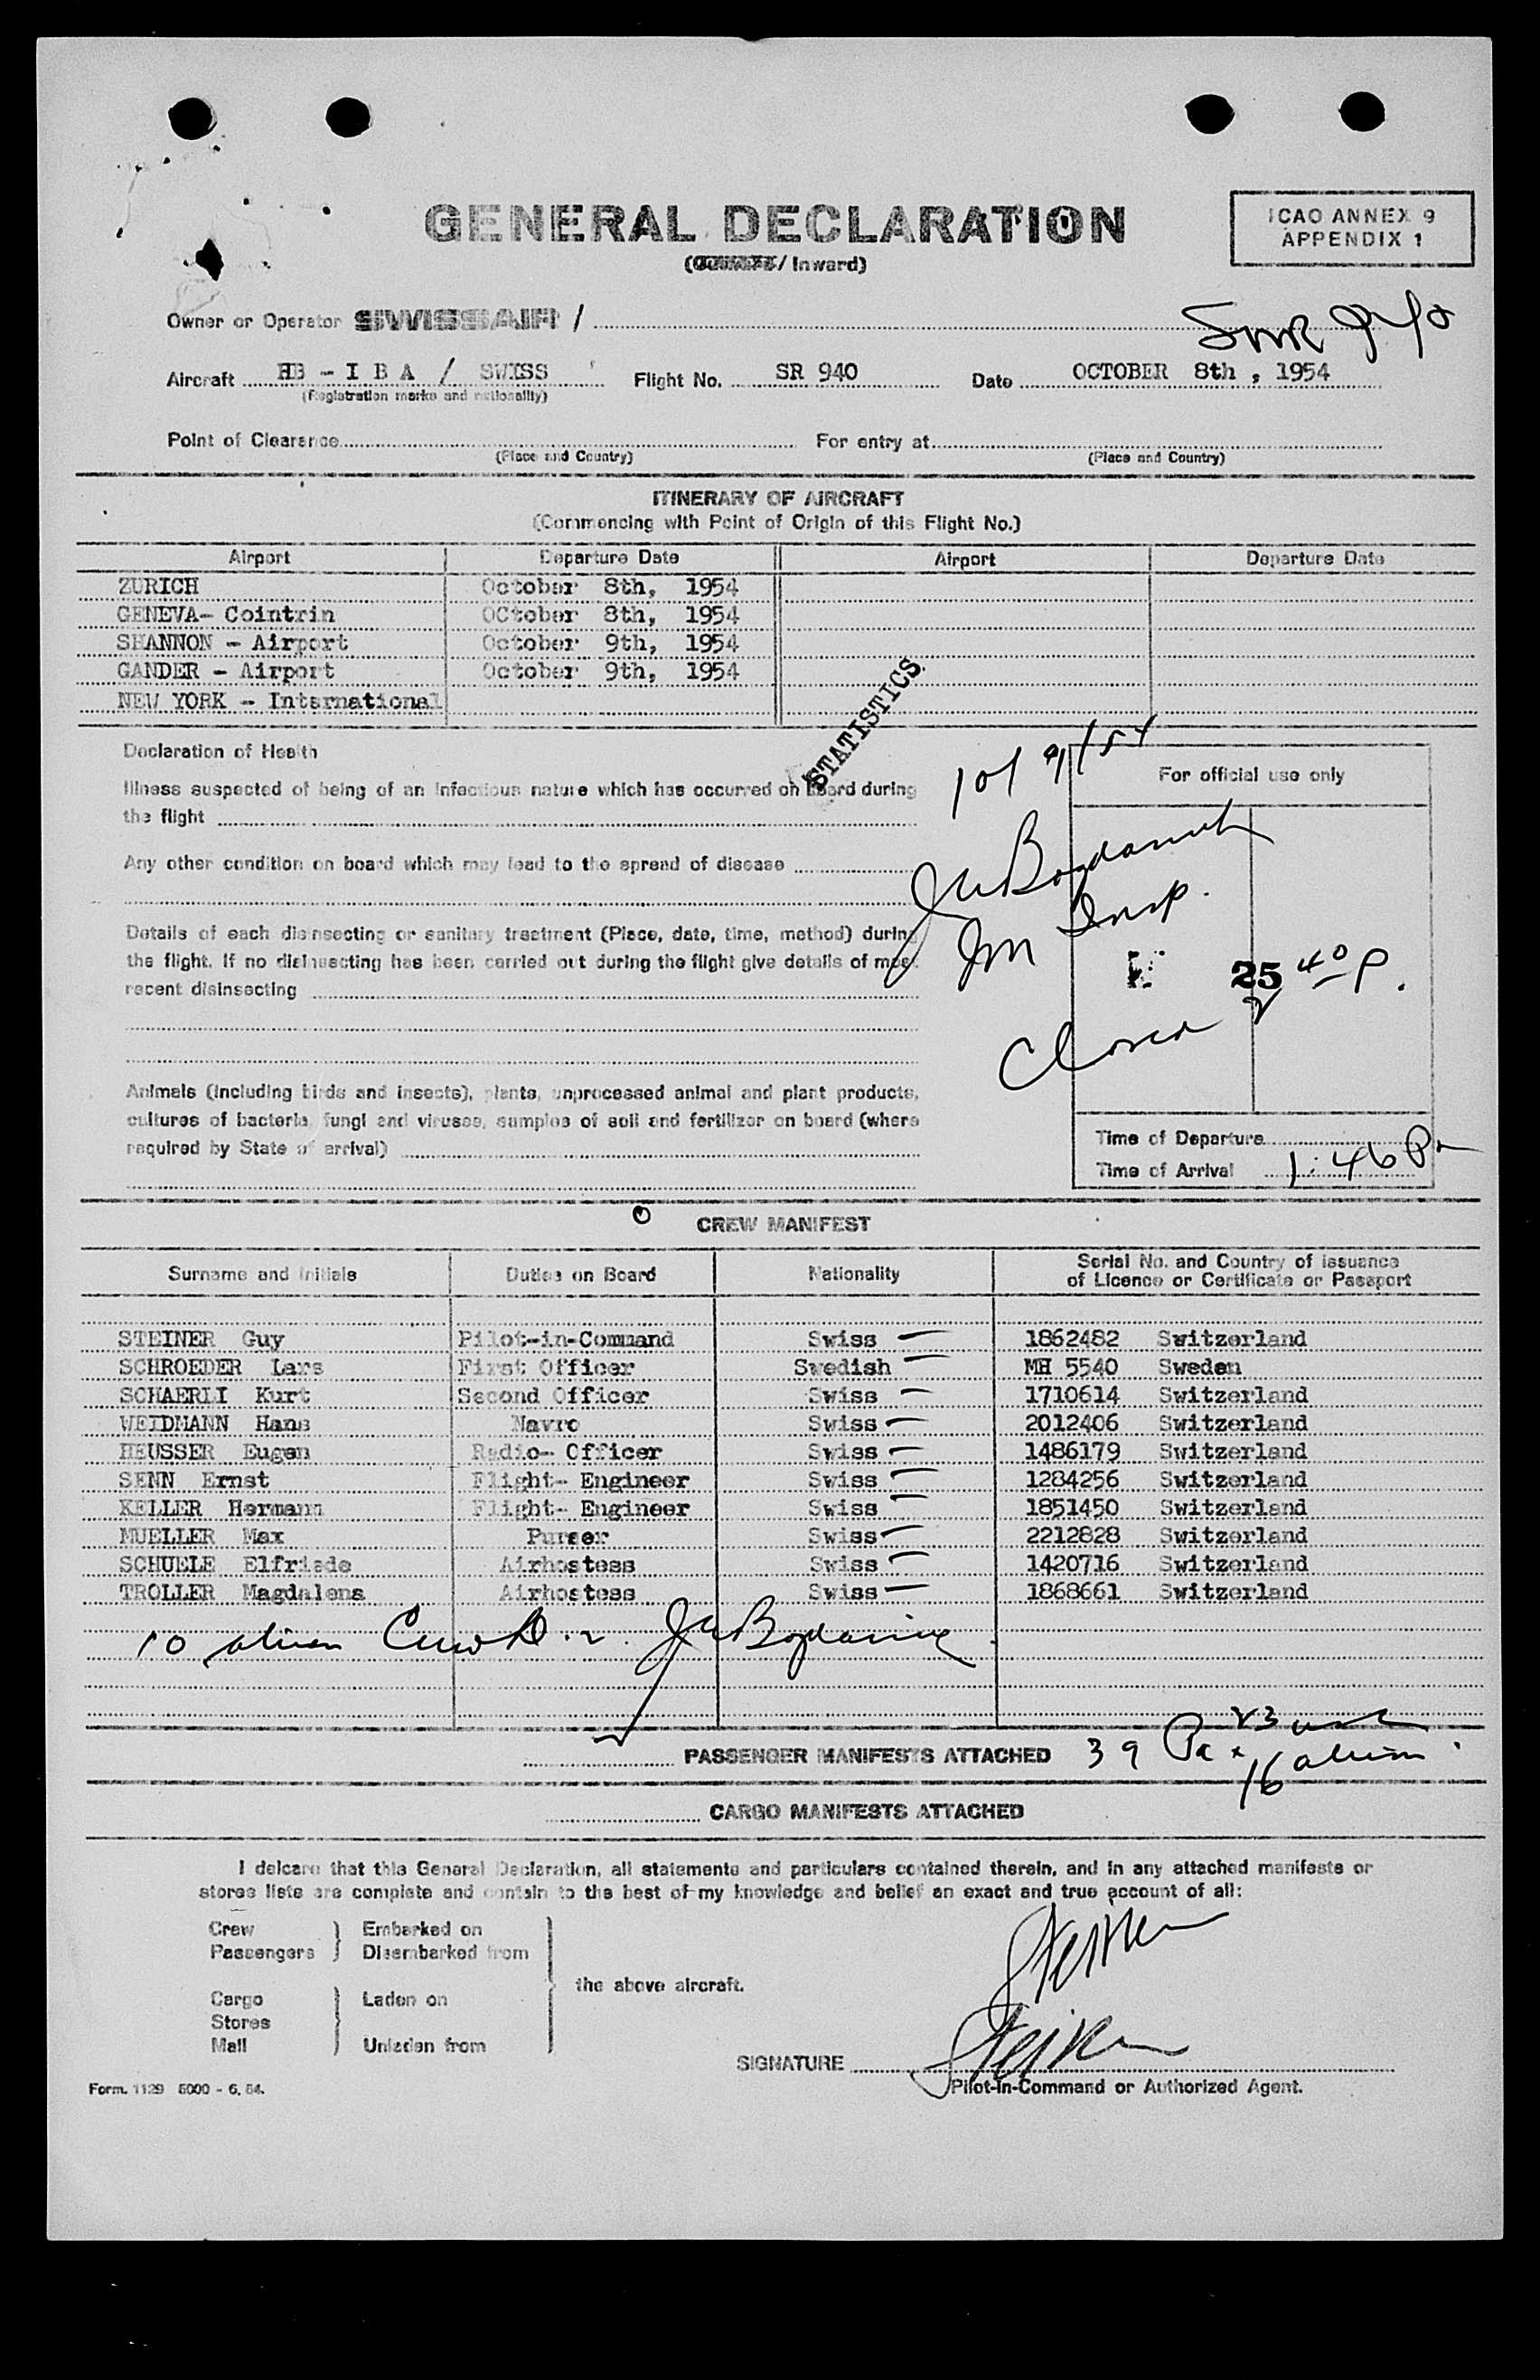 GENERAL DECLARATION
ICAO ANNEX 9
APPENDIX 1
(Outward / Inward)
Owner or Operator SWISSAIR /
SWR 940
Aircraft HB - I B A / SWISS Flight No. SR 940 Date OCTOBER 8th , 1954
(Registration marks and nationality)
Point of Clearance For entry at
(Place and Country) (Place and Country)
ITINERARY OF AIRCRAFT
(Commencing with Point of Origin of this Flight No.)
Airport Departure Date Airport Departure Date
ZURICH October 8th, 1954
GENEVA- Cointrin OCtober 8th, 1954
SHANNON - Airport October 9th, 1954
GANDER - Airport October 9th, 1954
NEW YORK - International
STATISTICS
Declaration of Health
Illness suspected of being of an infectious nature which has occurred on board during
the flight
Any other condition on board which may lead to the spread of disease
Details of each disinsecting or sanitary treatment (Place, date, time, method) during
the flight. If no disinsecting has been carried out during the flight give details of most
recent disinsecting
Animals (including birds and insects), plants, unprocessed animal and plant products,
cultures of bacteria, fungi and viruses, samples of soil and fertilizer on board (where
required by State of arrival)
10/9/54
For official use only
Im Insp.
25 40 P.
Closed 2
Time of Departure
Time of Arrival 1:46 P
CREW MANIFEST
Surname and Initials Duties on Board Nationality Serial No. and Country of issuance
of Licence or Certificate or Passport
STEINER Guy Pilot-in-Command Swiss 1862482 Switzerland
SCHROEDER Lars First Officer Swedish MH 5540 Sweden
SCHAERLI Kurt Second Officer Swiss 1710614 Switzerland
WEIDMANN Hans Navro Swiss 2012406 Switzerland
HEUSSER Eugen Radio- Officer Swiss 1486179 Switzerland
SENN Ernst Flight- Engineer Swiss 1284256 Switzerland
KELLER Hermann Flight- Engineer Swiss 1851450 Switzerland
MUELLER Max Purser Swiss 2212828 Switzerland
SCHUELE Elfriede Airhostess Swiss 1420716 Switzerland
TROLLER Magdalena Airhostess Swiss 1868661 Switzerland
10 alien Crew
PASSENGER MANIFESTS ATTACHED 39 Pax 23 usc
16 alien
CARGO MANIFESTS ATTACHED
I delcare that this General Declaration, all statements and particulars contained therein, and in any attached manifests or
stores lists are complete and contain to the best of my knowledge and belief an exact and true account of all:
Crew Embarked on
Passengers Disembarked from
the above aircraft.
Cargo Laden on
Stores
Mail Unladen from
Steiner
SIGNATURE Steiner
Pilot-in-Command or Authorized Agent.
Form. 1129 5000 - 6. 54.